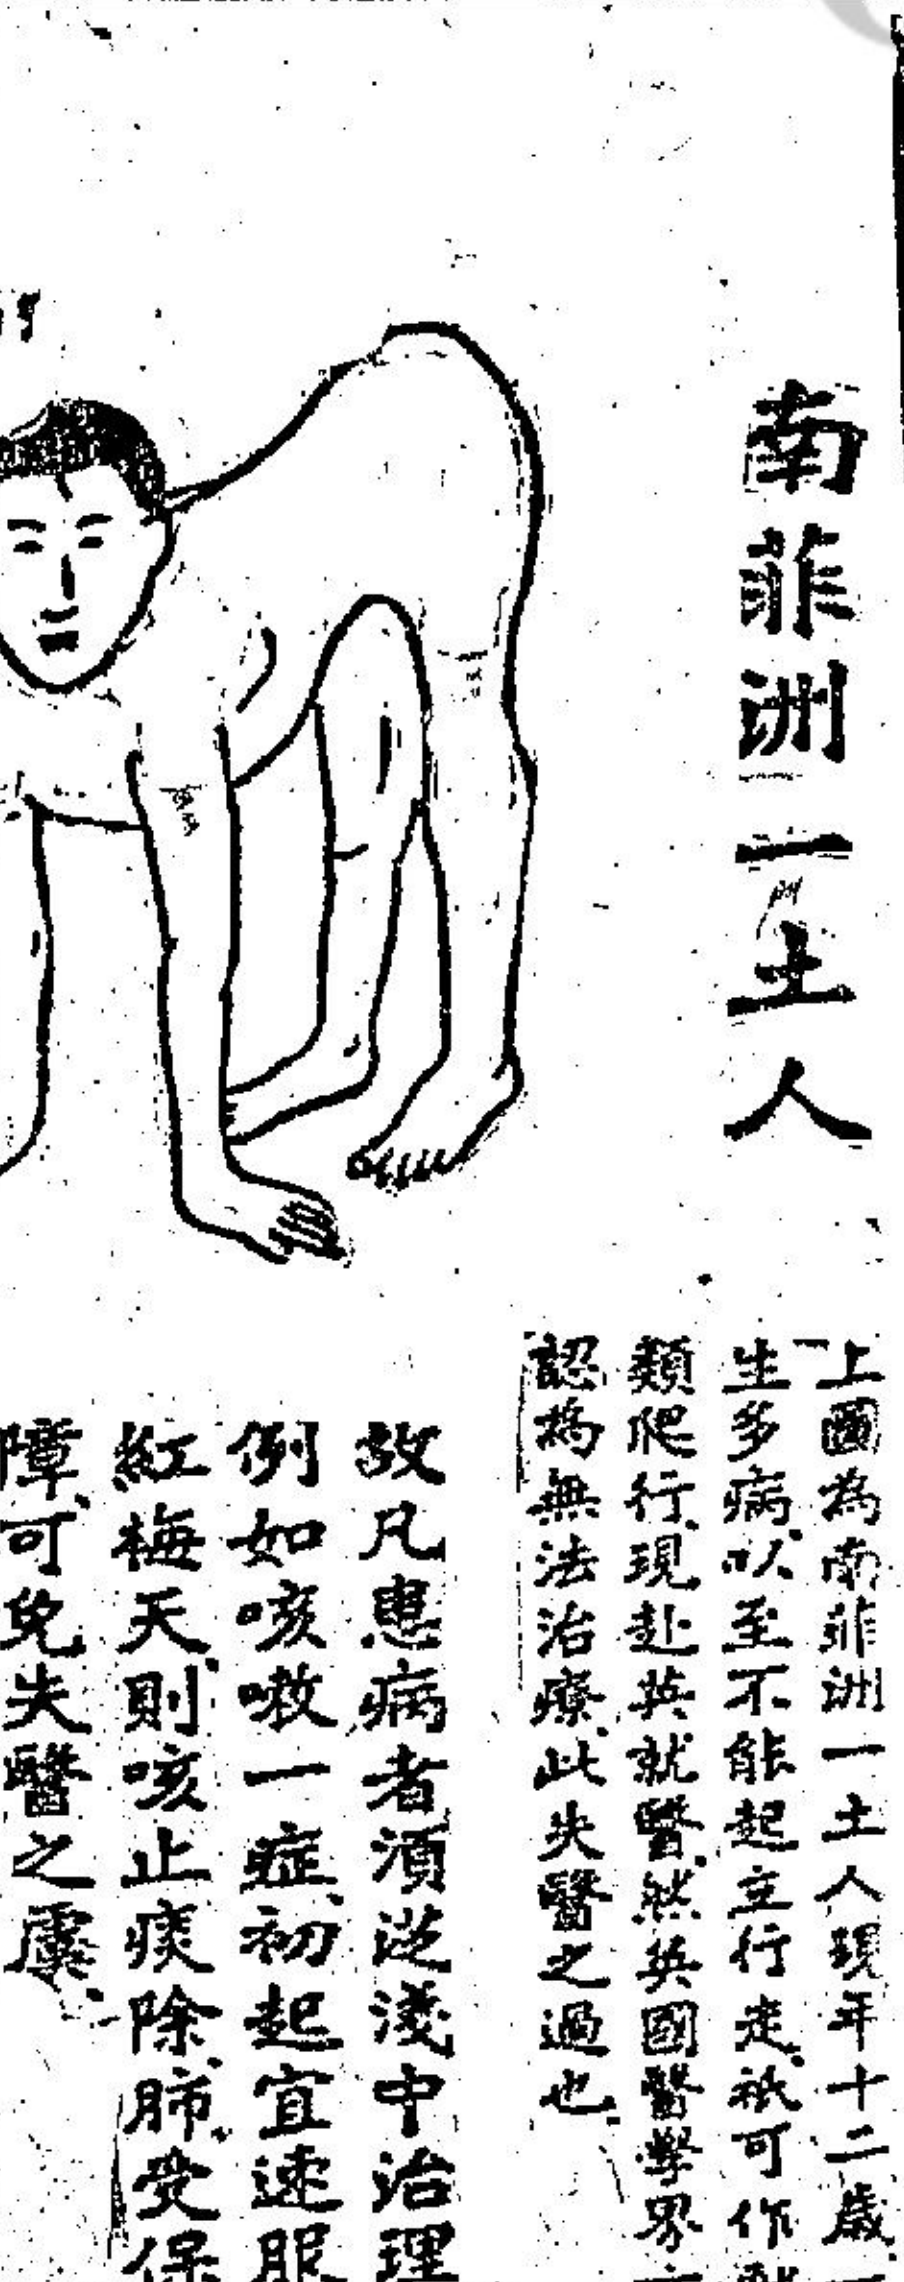 南菲洲一土人
上圖為南菲洲一土人現年十二歲
生多病以至不能起立行走祇可作
類爬行現赴英就醫然英國醫學界
認為無法治療此失醫之過也
故凡患病者須從淺中治理
例如咳嗽一症初起宜速服
紅梅天則咳止痰除肺受保
障可免失醫之虞